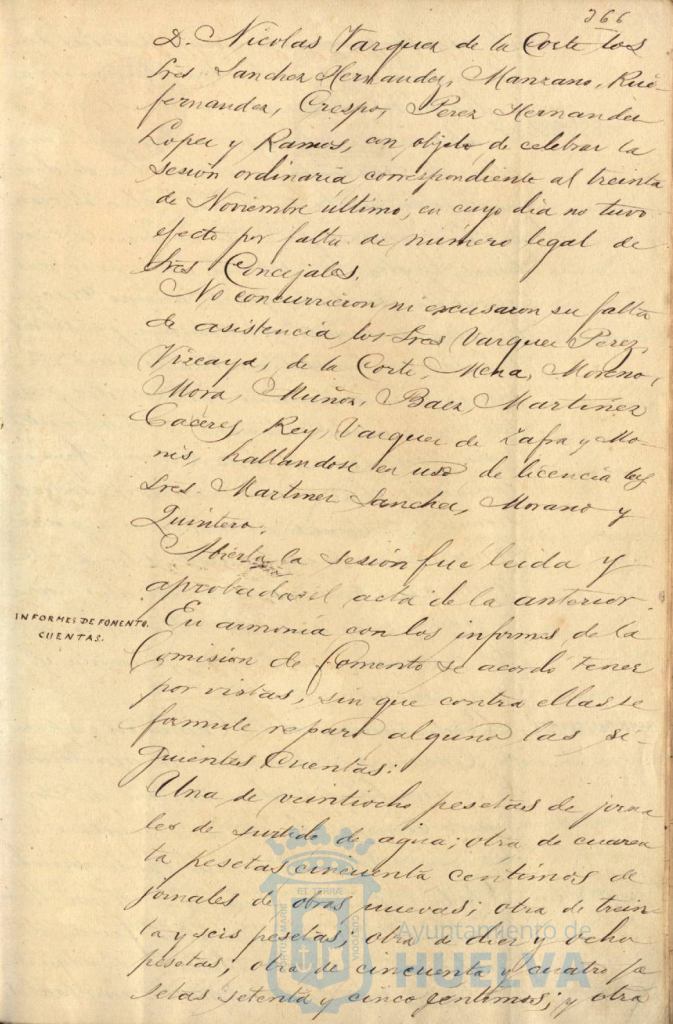 366
D. Nicolas Vazquez de la Corte los
Sres Sanchez Hernandez, Manzano, Rui-
fernandez, Crespo, Perez Hernandez
Lopez y Ramos, con objeto de celebrar la
sesión ordinaria correspondiente al treinta
de Noviembre último, en cuyo dia no tuvo
efecto por falta de número legal de
Sres Concejales.
No concurrieron ni excusaron su falta
de asistencia los Sres Vazquez Perez,
Vizcaya, de la Corte, Mena, Moreno,
Mora, Muñoz, Baez, Martinez
Caceres, Rey, Vazquez de Zafra y Mo-
nis, hallandose en uso de licencia los
Sres. Martinez Sanchez, Morano y
Quintero.
Abierta la sesión fue leida y
aprobada el acta de la anterior.
INFORMES DE FOMENTO.
CUENTAS.
En armonía con los informes de la
Comisión de Fomento se acordó tener
por vistas, sin que contra ellas se
formule reparo alguno las si-
guientes Cuentas:
Una de veintiocho pesetas de jorna
les de surtido de agua; otra de cuaren
ta pesetas cincuenta centimos de
jornales de obras nuevas; otra de trein-
ta y seis pesetas; otra de diez y ocho
pesetas; otra de cincuenta y cuatro pe
setas setenta y cinco centimos; y otra
Ayuntamiento de
HUELVA